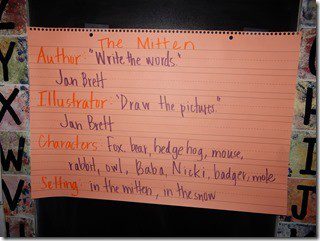 The Mitten
Author: "Write the words."
Jan Brett
Illustrator: "Draw the pictures."
Jan Brett
Characters: Fox, bear, hedgehog, mouse,
rabbit, owl, Baba, Nicki, badger, mole
Setting: in the mitten, in the snow